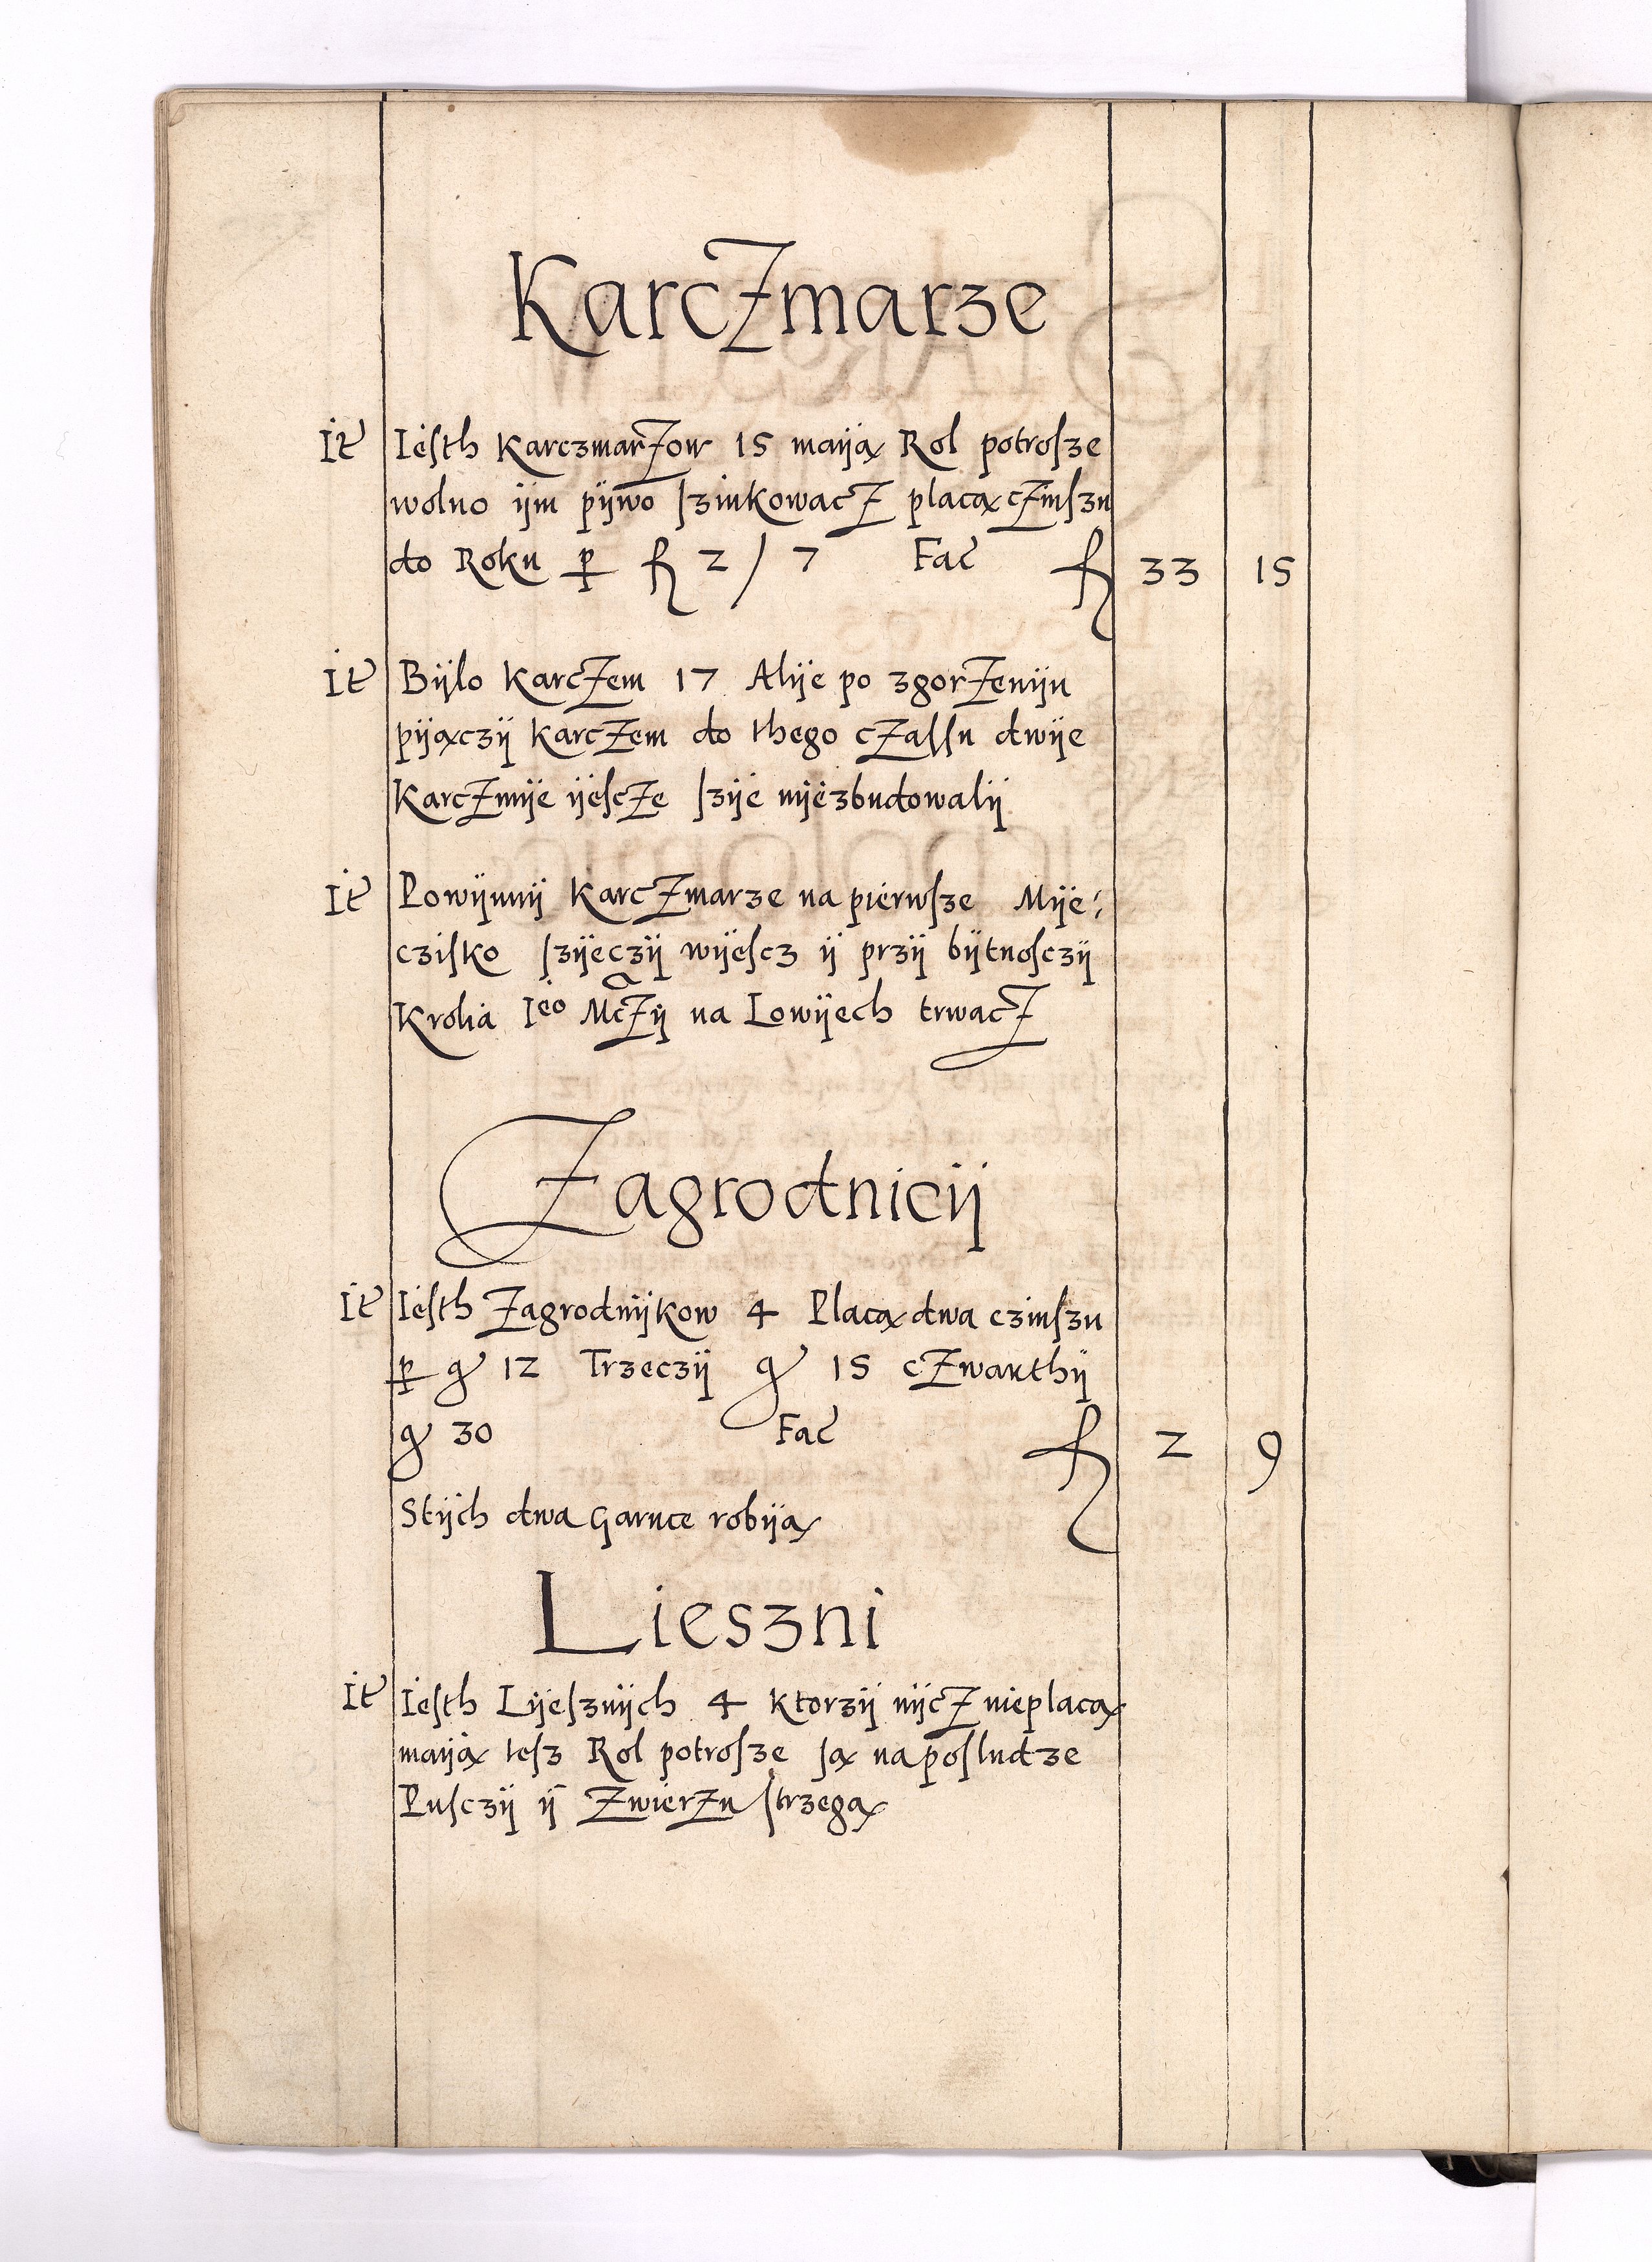 Karczmarze
It Iesth karczmarzow 15 maija Rol potrosze
wolno ijm pijwo szinkowacz placa czinszu
do Roku p fl 2 / 7 Fac fl 33 15
It Bijlo karczem 17 Alije po zgorzenijn
pijaczij karczem do thego czassu dwije
karczmije ijescze szije nijezbudowalij
It Powijnnij karczmarze na pierwsze Mije:
czisko szijeczij wijescz ij przij bijtnosczij
Krolia Ieo Mczij na Lowijech trwacz
Zagrodnicij
It Iesth Zagrodnijkow 4 Placa dwa czinszu
p g 12 Trzeczij g 15 czwarthij
g 30 Fac fl 2 9
Stijch dwa Garnce robija
Lieszni
It Iesth Lijesznijch 4 ktorzij nijcz nieplaca
maija tesz Rol potrosze sa na posludze
Pusczij ij Zwierzu strzega